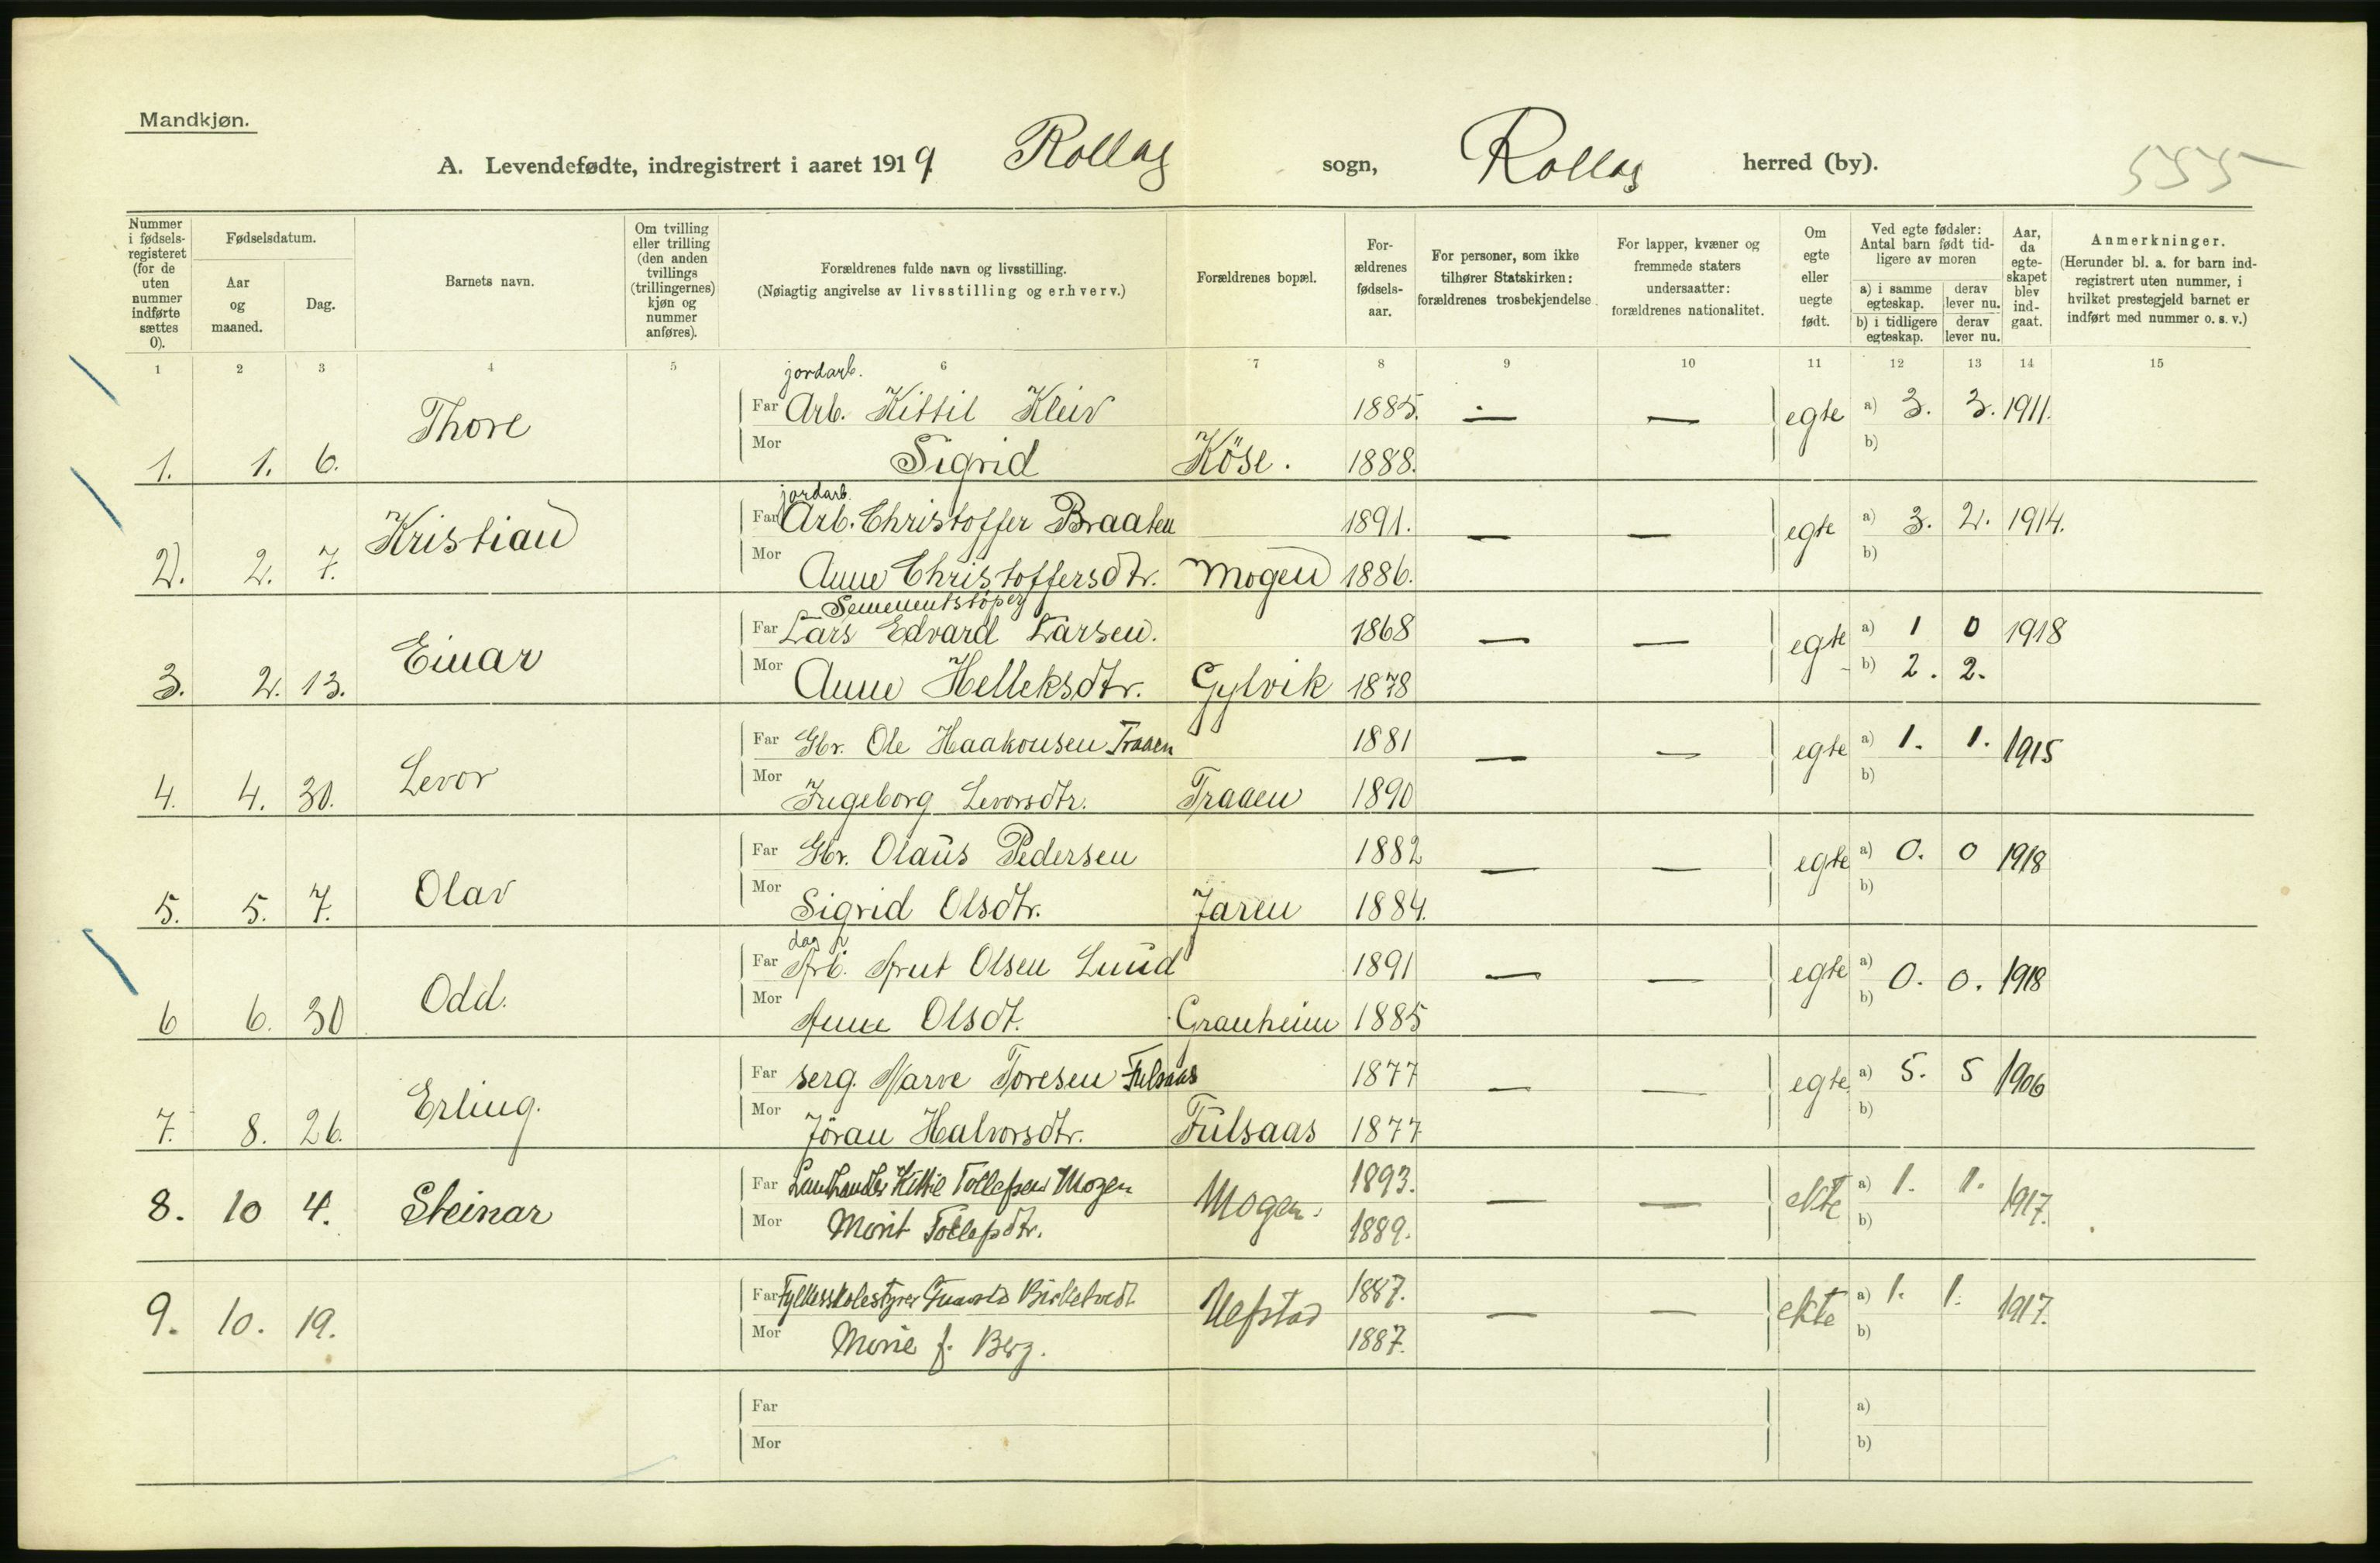 Mandkjøn.
A. Levendefødte, indregistrert i aaret 1919. Rollag sogn, Rollag herred (by). 555
Nummer i fødselsregisteret (for de uten nummer indførte sættes 0).
Fødselsdatum.
Aar og maaned.
Dag.
Barnets navn.
Om tvilling eller trilling (den anden tvillings (trillingernes) kjøn og nummer anføres).
Forældrenes fulde navn og livsstilling.
(Nøiagtig angivelse av livsstilling og erhverv.)
Forældrenes bopæl.
Forældrenes fødselsaar.
For personer, som ikke tilhører Statskirken: forældrenes trosbekjendelse.
For lapper, kvæner og fremmede staters undersaatter: forældrenes nationalitet.
Om egte eller uegte født.
Ved egte fødsler: Antal barn født tidligere av moren
a) i samme egteskap.
derav lever nu.
b) i tidligere egteskap.
derav lever nu.
Aar, da egteskapet blev indgaat.
Anmerkninger.
(Herunder bl. a. for barn indregistrert uten nummer, i hvilket prestegjeld barnet er indført med nummer o. s. v.)
1 2 3 4 5 6 7 8 9 10 11 12 13 14 15
jordarb.
Far Arb. Kittil Kleiv 1885. — — egte a) 3. 3. 1911.
1. 1. 6. Thore Mor Sigrid Köse. 1888. b)
jordarb.
Far Arb. Christoffer Braaten 1891. — — egte a) 3. 2. 1914.
2. 2. 7. Kristian Mor Anne Christoffersdtr. Mogen 1886. b)
Sementstöper
Far Lars Edvard Larsen. 1868 — — egte a) 1 0 1918
3. 2. 13. Einar Mor Anne Helleksdtr. Gylvik 1878 b) 2. 2.
Far Gbr. Ole Haakonsen Traaen 1881 — — egte a) 1. 1. 1915
4. 4. 30. Levor Mor Ingeborg Levorsdtr. Traaen 1890 b)
Far Gbr. Olaus Pedersen 1882 — — egte a) 0. 0 1918
5. 5. 7. Olav Mor Sigrid Olsdtr. Jaren 1884. b)
dag
Far Arb. Arut Olsen Lund 1891 — — egte a) 0. 0. 1918
6 6. 30 Odd. Mor Anne Olsdt. Granheim 1885 b)
Far serg. Narve Toresen Fulsaas 1877 — — egte a) 5. 5 1906
7. 8. 26. Erling. Mor Jöran Halvorsdtr. Fulsaas 1877 b)
Far Landhandler Kittil Tollefsen Mogen 1893. — — ekte a) 1. 1. 1917.
8. 10 4. Steinar Mor Marit Tollefsdtr. Mogen. 1889. b)
Far Fylkesskolestyrer Birketvedt 1887. — — ekte a) 1. 1. 1917.
9. 10. 19. Mor Marie f. Berg. 1887. b)
Far a)
Mor b)